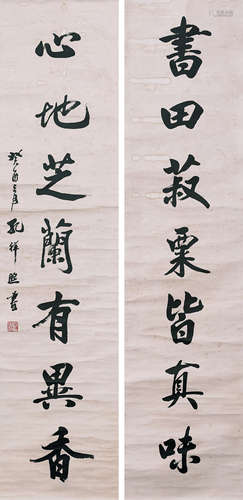 書田菽粟皆真味
心地芝蘭有異香
癸酉三月孔祥熙書